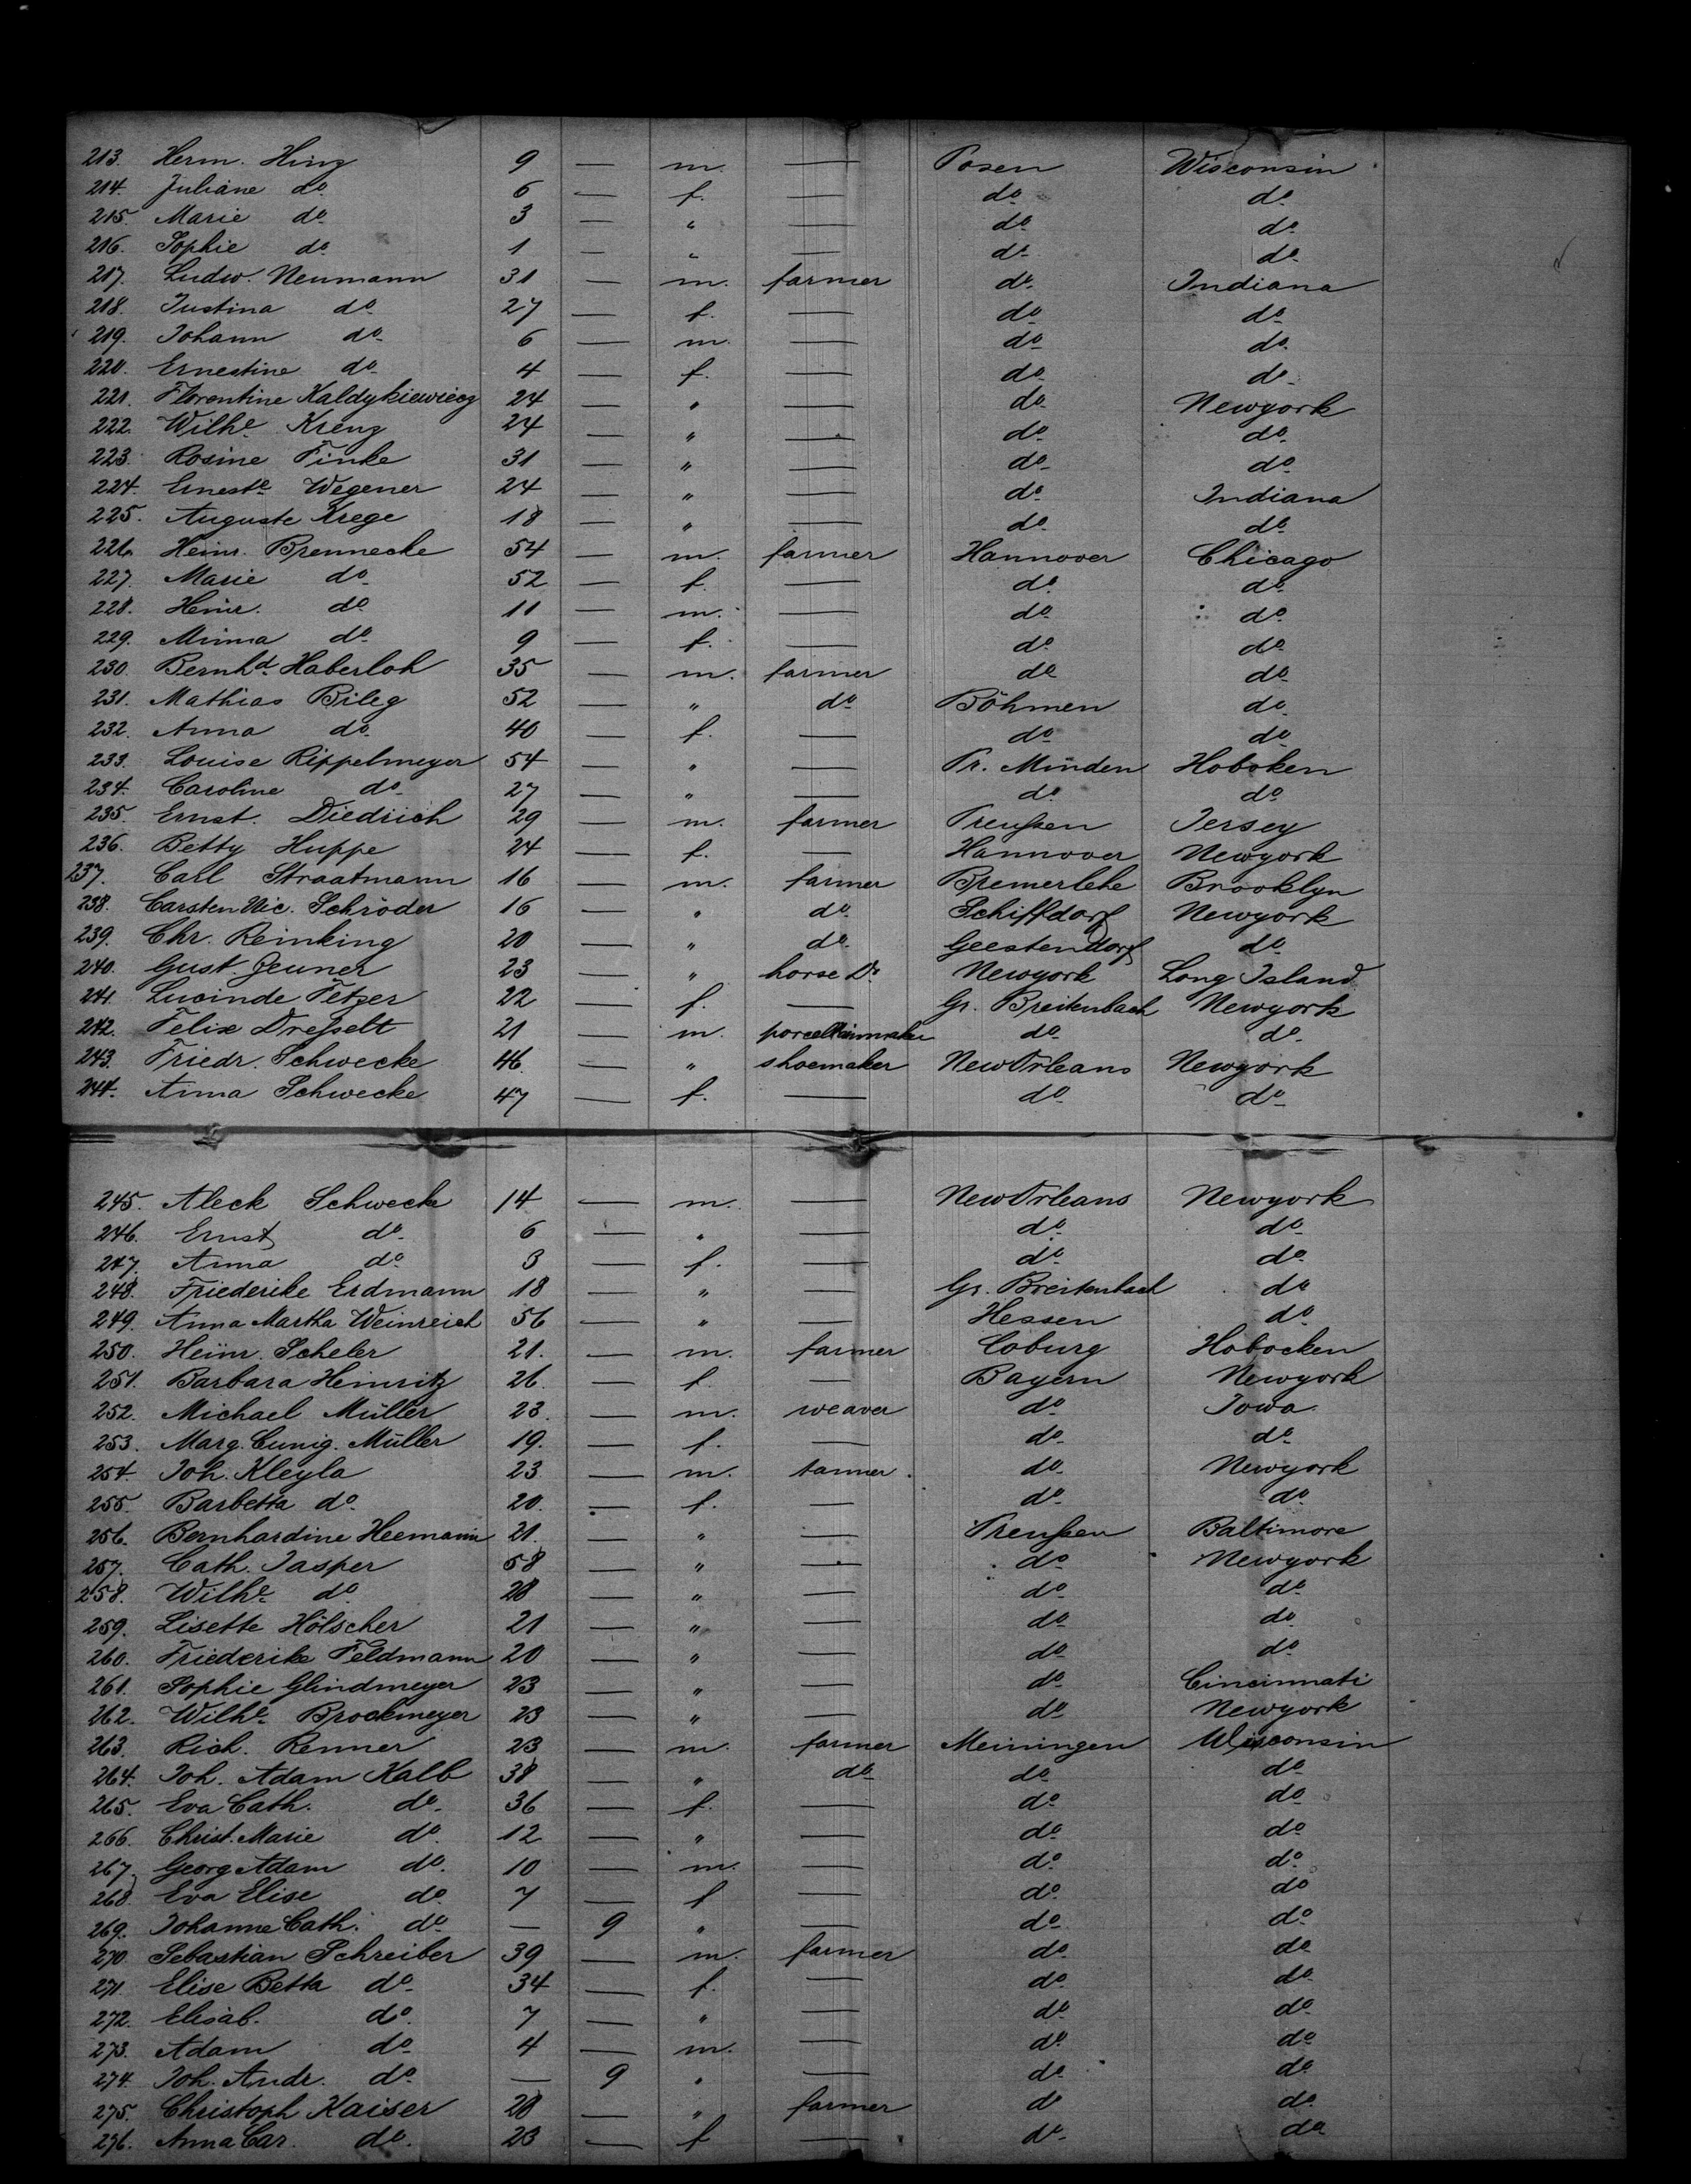 213. Herm. Hinz 9 — m. — Posen Wisconsin
214. Juliane do 6 — f. — do do
215. Marie do 3 — " — do do
216. Sophie do 1 — " — do do
217. Ludw. Neumann 31 — m. farmer do Indiana
218. Justina do 27 — f. — do do
219. Johann do 6 — m. — do do
220. Ernestine do 4 — f. — do do
221. Florentine Kaldykiewiecz 24 — " — do Newyork
222. Wilhe Krenz 24 — " — do do
223. Rosine Finke 31 — " — do do
224. Erneste Wegener 24 — " — do Indiana
225. Auguste Krege 18 — " — do do
226. Heinr. Brennecke 54 — m. farmer Hannover Chicago
227. Marie do 52 — f. — do do
228. Heinr. do 11 — m. — do do
229. Minna do 9 — f. — do do
230. Bernhd Haberloh 35 — m. farmer do do
231. Mathias Bileg 52 — " do Böhmen do
232. Anna do 40 — f. — do do
233. Louise Rippelmeyer 54 — " — Pr. Minden Hoboken
234. Caroline do 27 — " — do do
235. Ernst. Diedrich 29 — m. farmer Preußen Jersey
236. Betty Huppe 24 — f. — Hannover Newyork
237. Carl Straatmann 16 — m. farmer Bremerlehe Brooklyn
238. Carsten Nic. Schröder 16 — " do Schiffdorf Newyork
239. Chr. Reinking 20 — " do Geestendorf do
240. Gust. Jeuner 23 — " horse Dr Newyork Long Island
241. Lucinde Fetzer 22 — f. — Gr. Breitenbach Newyork
242. Felix Dreßelt 21 — m. porcellainmaker do do
243. Friedr. Schwecke 46 — " shoemaker New Orleans Newyork
244. Anna Schwecke 47 — f. — do do
245. Aleck Schwecke 14 — m. — New Orleans Newyork
246. Ernst do 6 — " — do do
247. Anna do 3 — f. — do do
248. Friederike Erdmann 18 — " — Gr. Breitenbach do
249. Anna Martha Weinreich 56 — " — Hessen do
250. Heinr. Scheler 21. — m. farmer Coburg Hobocken
251. Barbara Heinritz 26. — f. — Bayern Newyork
252. Michael Müller 23. — m. weaver do Iowa
253. Marg. Cunig. Müller 19. — f. — do do
254. Joh. Kleyla 23 — m. tanner. do Newyork
255. Barbetta do 20. — f. — do do
256. Bernhardine Heemann 21. — " — Preußen Baltimore
257. Cath. Jasper 58 — " — do Newyork
258. Wilhe do 28 — " — do do
259. Lisette Hölscher 21 — " — do do
260. Friederike Feldmann 20 — " — do do
261. Sophie Glindmeyer 23 — " — do Cincinnati
262. Wilhe Brockmeyer 23 — " — do Newyork
263. Rich. Renner 23 — m. farmer Meiningen Wisconsin
264. Joh. Adam Kalb 38 — " do do do
265. Eva Cath. do 36 — f. — do do
266. Christ. Marie do 12 — " — do do
267. Georg Adam do 10 — m. — do do
268. Eva Elise do 7 — f — do do
269. Johanne Cath. do — 9 " — do do
270. Sebastian Schreiber 39 — m. farmer do do
271. Elise Betta do 34 — f. — do do
272. Elisab. do 7 — " — do do
273. Adam do 4 — m. — do do
274. Joh. Andr. do — 9 " — do do
275. Christoph Kaiser 28 — " farmer do do
276. Anna Car. do 23 — f — do do